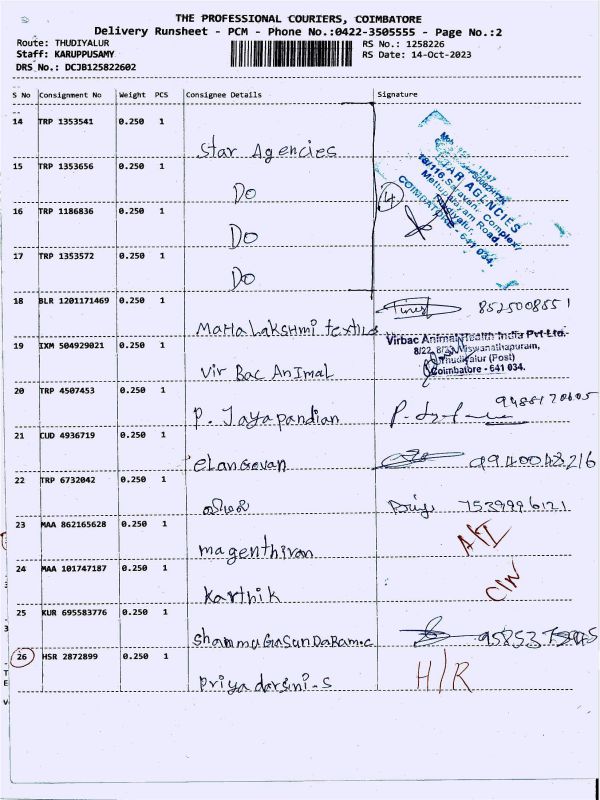 THE PROFESSIONAL COURIERS, COIMBATORE
Delivery Runsheet - PCM - Phone No.:0422-3505555 - Page No.:2
Route: THUDIYALUR
RS No.: 1258226
Staff: KARUPPUSAMY
RS Date: 14-Oct-2023
DRS No.: DCJB125822602
S No Consignment No Weight PCS Consignee Details Signature
14 TRP 1353541 0.250 1
Star Agencies
15 TRP 1353656 0.250 1
Do
16 TRP 1186836 0.250 1
Do
17 TRP 1353572 0.250 1
Do
4
STAR AGENCIES
18/116, Saravana Complex,
Mettupalayam Road,
Thudiyalur,
COIMBATORE - 641 034.
18 BLR 1201171469 0.250 1
MaHaLakshmi textiles
8525008551
19 IXM 504929021 0.250 1
Vir Bac AnImal
Virbac Animal Health India Pvt Ltd.
8/22, 8/23, Viswanathapuram,
Thudiyalur (Post)
Coimbatore - 641 034.
20 TRP 4507453 0.250 1
P. Jayapandian
21 CUD 4936719 0.250 1
elangovan
9940048216
22 TRP 6732042 0.250 1
7539996121
23 MAA 862165628 0.250 1
magenthiran
24 MAA 101747187 0.250 1
karthik
25 KUR 695583776 0.250 1
ShanmuGaSunDaRam.c
26 HSR 2872899 0.250 1
Priyadarsini-S
H/R